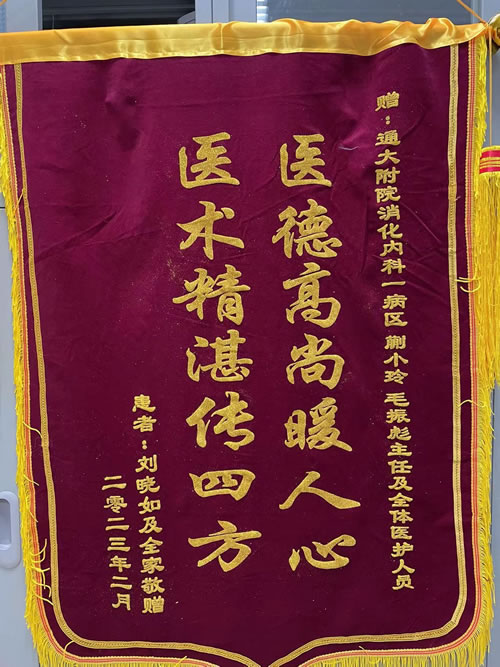 赠：通大附院消化内科一病区 蒯小玲 毛振彪主任及全体医护人员
医德高尚暖人心
医术精湛传四方
患者：刘晓如及全家敬赠
二零二三年二月